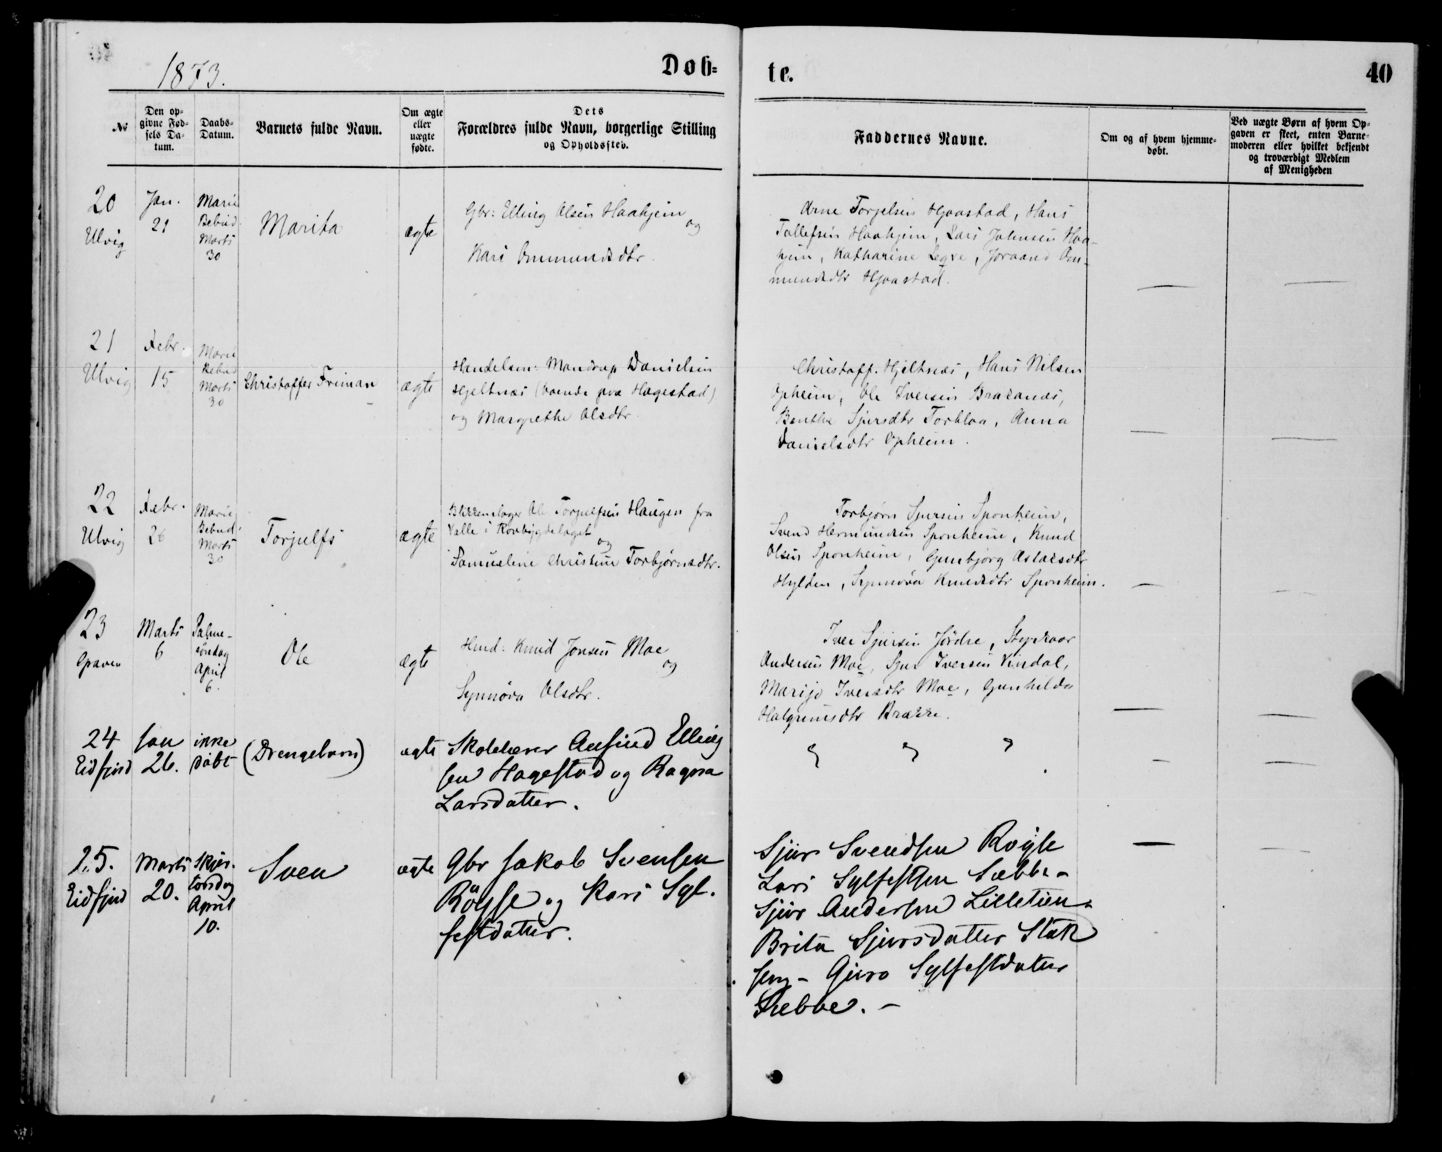 1873.
Døb=
te.
40
№
Den op-
givne Fød-
sels Da-
tum.
Daabs-
Datum.
Barnets fulde Navn.
Om ægte
eller
uægte
fødte.
Dets
Forældres fulde Navn, borgerlige Stilling
og Opholdssted.
Faddernes Navne.
Om og af hvem hjemme-
døbt.
Ved uægte Børn af hvem Op-
gaven er skeet, enten Barne-
moderen eller hvilket bekjendt
og troværdigt Medlem
af Menigheden
20
Ulvig
Jan.
21
Marie
Bebud.
Marts
30
Marita
ægte
Gbr: Elling Olsen Haaheim og
Kari Ommundsdtr.
Arne Torjelsen Hjaastad, Hans
Tollefsen Haaheim, Lars Johnsen Haa-
heim, Katharine Legre, Joraand Om-
mundsdtr Hjaastad.
21
Ulvig
Febr.
15
Marie
Bebud
Marts
30
Christoffer Friman
ægte
Handelsm: Mandrup Danielsen
Hjeltnæs (boende paa Hagestad)
og Margrethe Olsdtr.
Christoff. Hjeltnæs, Hans Nilsen
Opheim, Ole Iversen Brakanæs,
Benthe Sjursdtr Torblaa, Anna
Danielsdtr Opheim.
22
Ulvig
Febr.
26
Marie
Bebud.
Marts
30
Torjulfs
ægte
Blikkenslager Ole Torjulfsen Haugen fra
Valle i Robygdelaget og
Samueline Christine Torbjørnsdtr.
Torbjørn Sjursen Sponheim,
Svend Hermundsen Sponheim, Knud
Olsen Sponheim, Gunbjørg Aslaksdtr
Hylden, Synnøva Knudsdtr Sponheim.
23
Graven
Marts
6
Palme-
søndag
April
6.
Ole
ægte
Hmd. Knud Jonsen Moe
og
Synnøva Olsdtr.
Iver Sjursen Jørdre,
Andersen Moe, Sjur Iversen Vindal,
Marijo Iversdtr Moe, Gunhilda
Halgrimsdtr Brakke.
24
Eidfjord
Jan
26.
ikke
døbt
(Drengebarn)
ægte
Skolelærer Anfind Elling
sen Hagestad og Ragna
Larsdatter.
25.
Eidfjord
Marts
20.
Skjær-
torsdag
April
10.
Sven
ægte
Gbr Jakob Svensen
Røyse og Kari Syl-
festdatter.
Sjur Svendsen Røyse
Lars Sylfestsen Sæbbe-
Sjur Andersen Lilletun-
Brita Sjursdatter Stæk
seng - Guro Sylfestdatter
Sæbbe. -